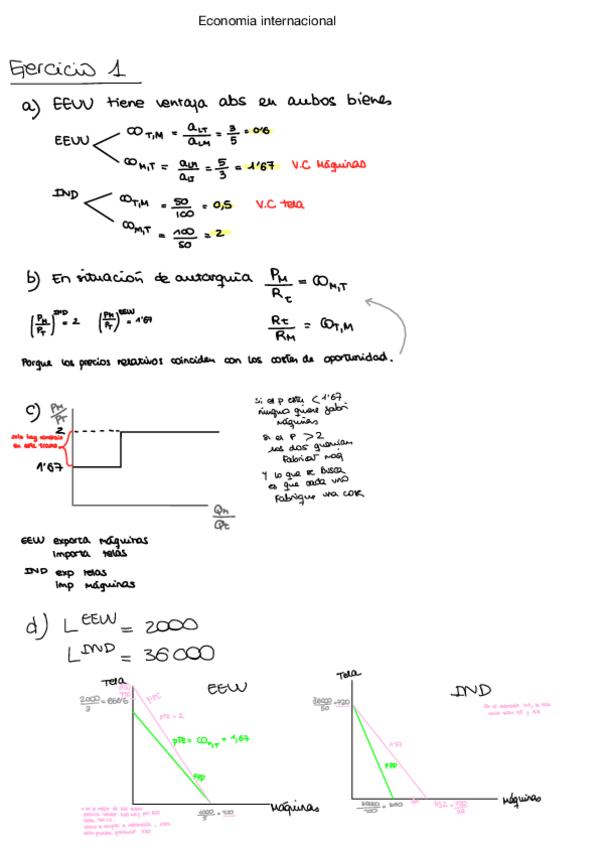 Economia internacional
Ejercicio 1
a) EEUU tiene ventaja abs en ambos bienes
EEUU
CO T,M = aLT/aLM = 3/5 = 0'6
CO M,T = aLM/aLT = 5/3 = 1'67 V.C Máquinas
IND
CO T,M = 50/100 = 0,5 V.C tela
CO M,T = 100/50 = 2
b) En situación de autarquía PM/Rt = CO M,T
(PM/PT)^IND = 2 (PM/PT)^EEUU = 1'67 Rt/RM = CO T,M
Porque los precios relativos coinciden con los costes de oportunidad.
c) PM/PT
2
solo hay comercio
en este tramo
1'67
QM/Qt
Si el p es < 1'67
ninguno quiere fabri
máquinas
Si el P > 2
los dos querrían
Fabricar maq
Y lo que se busca
es que cada uno
Fabrique una cosa
EEUU exporta máquinas
importa telas
IND exp telas
imp máquinas
d) L^EEUU = 2000
L^IND = 36000
Tela
EEUU
2000/3 = 666'6
FPC
pte = 2
pte = CO M,T = 1,67
FPP
Máquinas
Tela
IND
36000/50 = 720
1'67
FPP
Máquinas